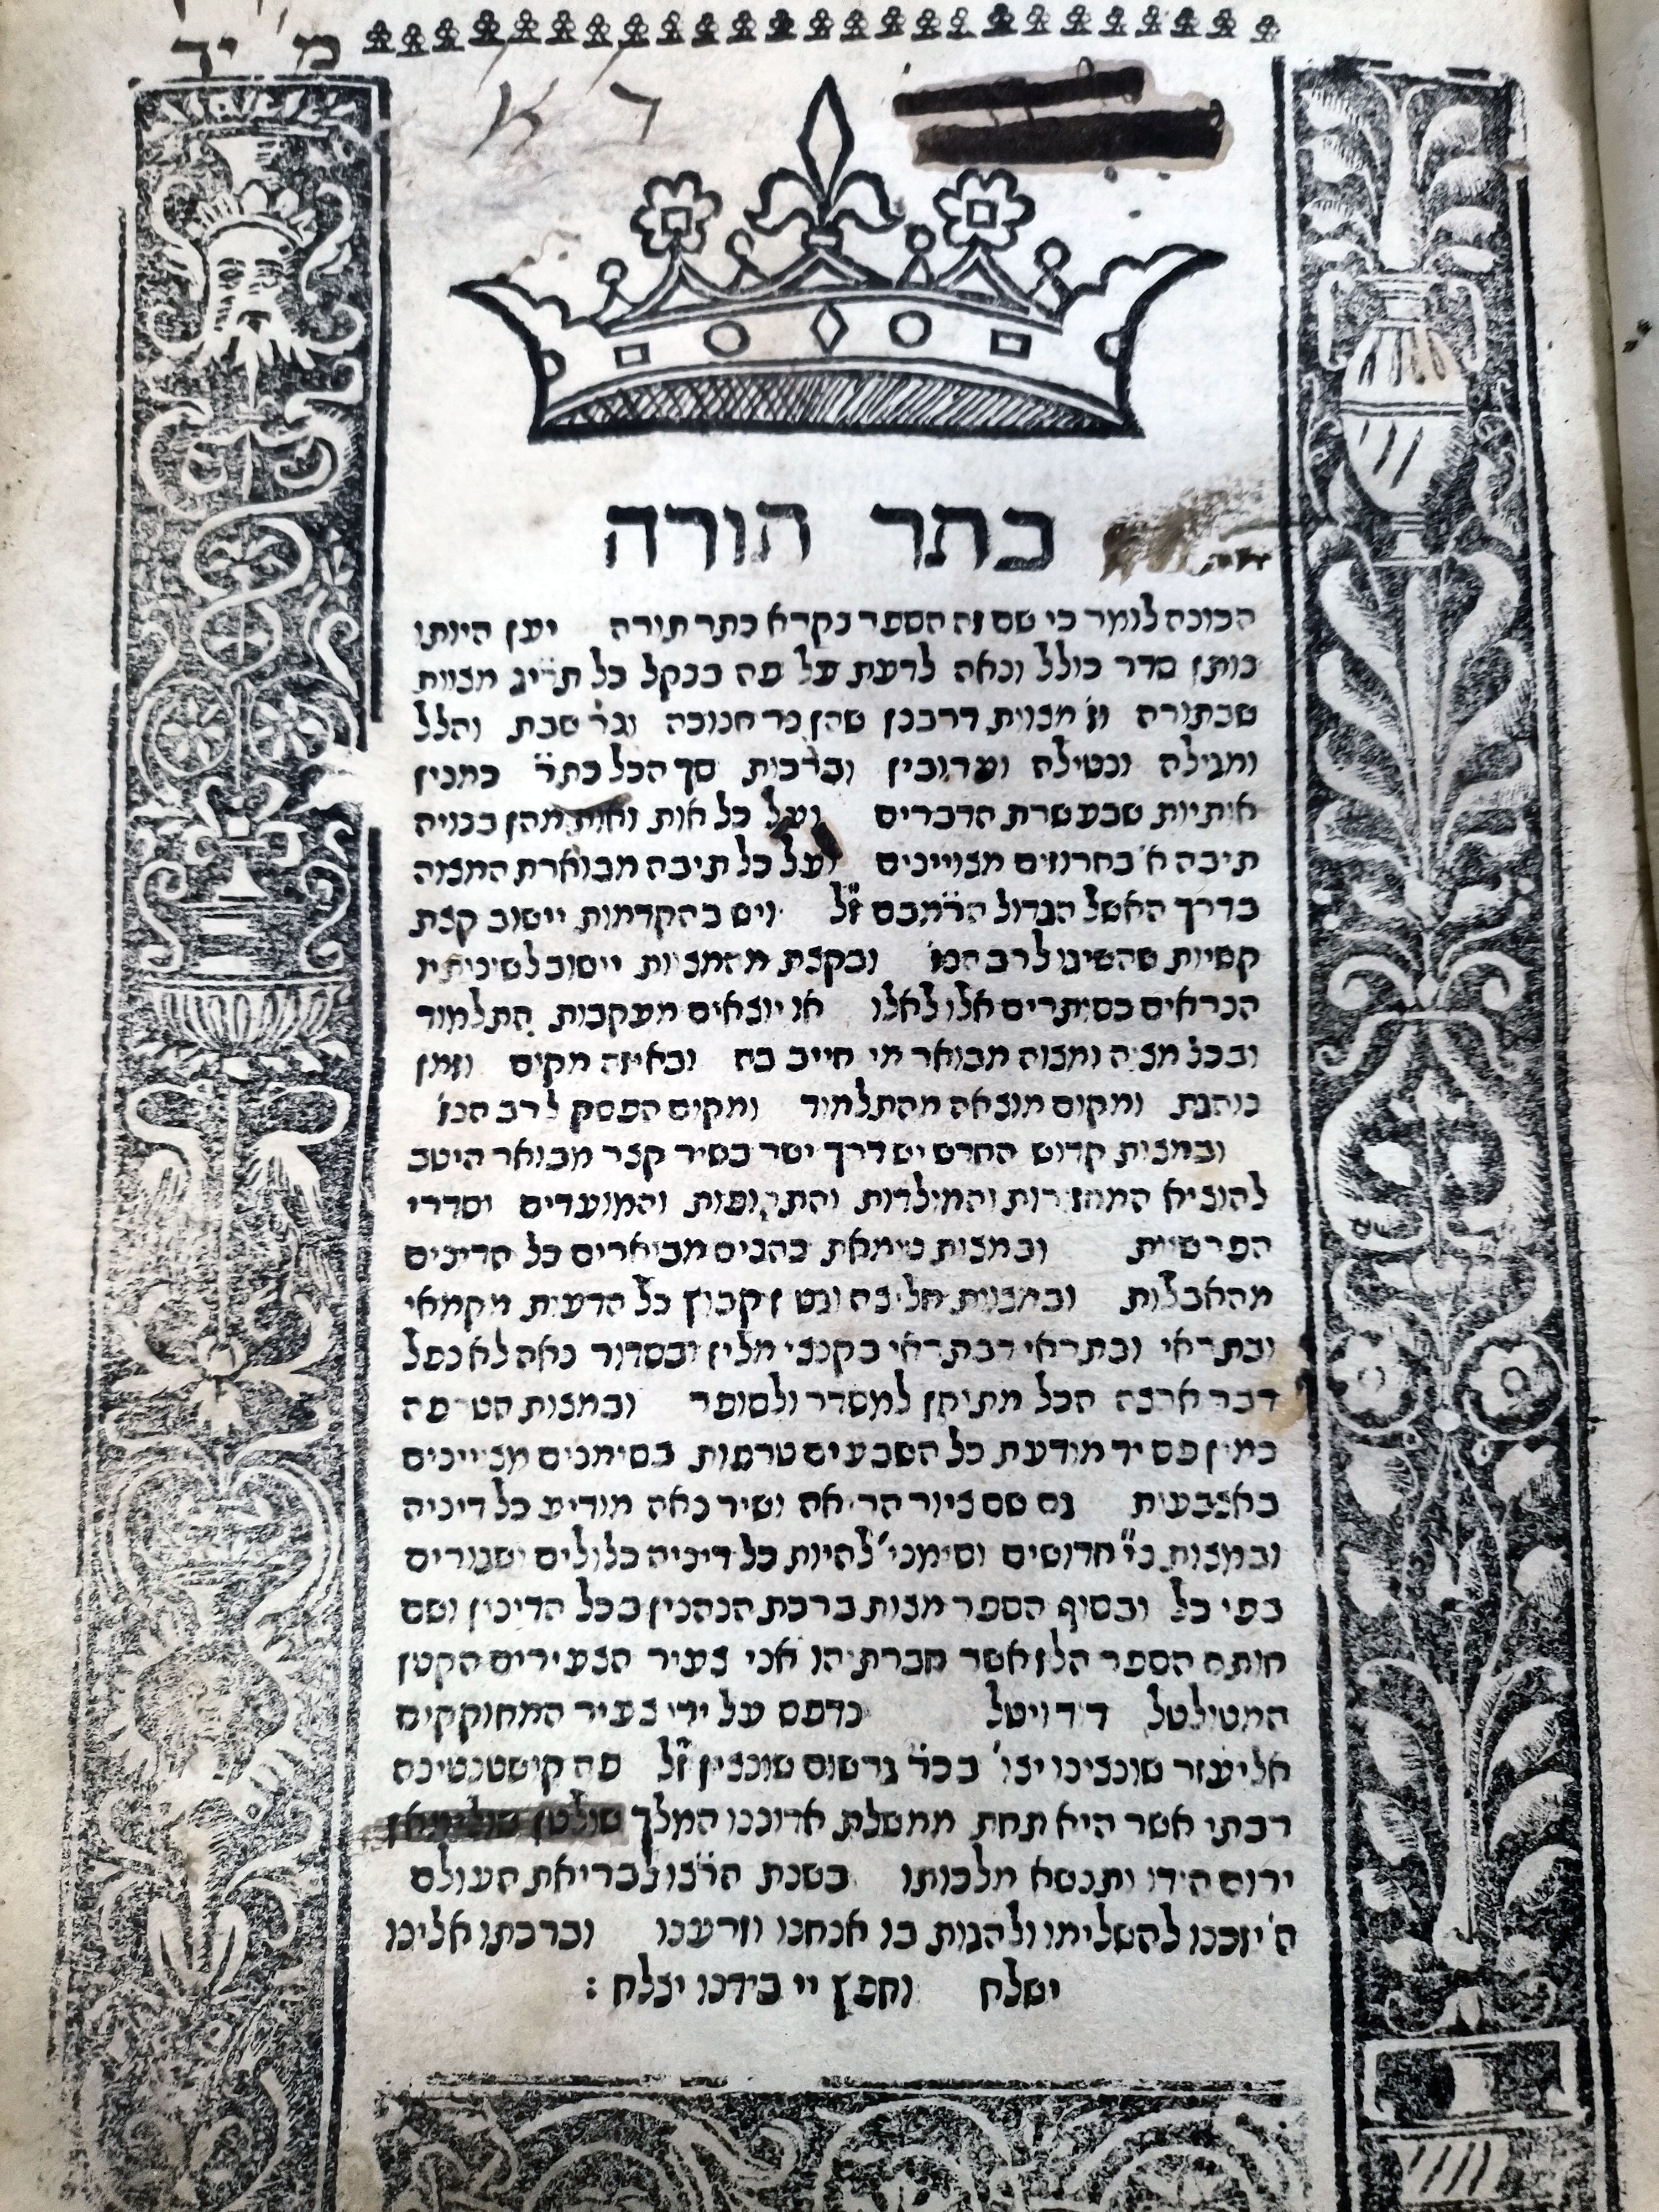 מ יד
ר א
כתר תורה
הכונה לומר כי שם זה הספר נקרא כתר תורה יען היותו
נותן סדר כולל ונאה לדעת על פה בנקל כל תרי״ג מצוות
שבתורה וז׳ מצוות דרבנן שהן נר חנוכה ונר שבת והלל
ומגילה ונטילה וערובין וברכות סך הכל כתר כמנין
אותיות שבעשרת הדברים ועל כל אות ואות מהן בנויה
תיבה א׳ בחרוזים מצויינים ועל כל תיבה מבוארת המצוה
בדרך האשל הגדול הר״מבם ז״ל ויש בהקדמות יישוב קצת
קשיות שהשיגו לרב הנז׳ ובקצת מהמצוות יישוב לשינויין
הנראים כסותרים אלו לאלו או יוצאים מעקבות התלמוד
ובכל מצוה ומצוה מבואר מי חייב בה ובאיזה מקום וזמן
נוהגת ומקום מוצאה מהתלמוד ומקום הפסק לרב הנז׳
ובמצות קדוש החדש יש דרך ישר בשיר קצר מבואר היטב
להוציא המחזורות והמולדות והתקופות והמועדים וסדרי
הפרשיות ובמצות טומאת כהנים מבוארים כל הדינים
מהאבלות ובמצות חליצה וגט קבוץ כל הדעות מקמאי
ובתראי ובתראי דבתראי בקוצר מלין ובסדור נאה לא נפל
דבר ארצה הכל מתוקן למסדר ולסופר ובמצות הטרפה
כמין פס יד מודעת כל השבעים טרפות בסימנים מצויינים
באצבעות גם שם ציור הריאה ושיר נאה מודיע כל דיניה
ובמצות ני״ חדושים וסימני׳ להיות כל דיניה כלולים ושגורים
בפי כל ובסוף הספר מצות ברכת הנהנין בכל הדינין ושם
חותם הספר הלז אשר חברתיהו אני צעיר הצעירים הקטן
המטולטל דוד ויטל נדפס על ידי צעיר המחוקקים
אליעזר שונצינו יצו׳ בכ״ר גרשום שונצין ז״ל פה קושטנטינה
רבתי אשר היא תחת ממשלת אדוננו המלך שולטן שולימאן
ירום הודו ותנשא מלכותו בשנת הר״צו לבריאת העולם
ה׳ יזכנו להשלימו ולהגות בו אנחנו וזרענו וברכתו אלינו
ישלח וחפץ יי בידנו יצלח :